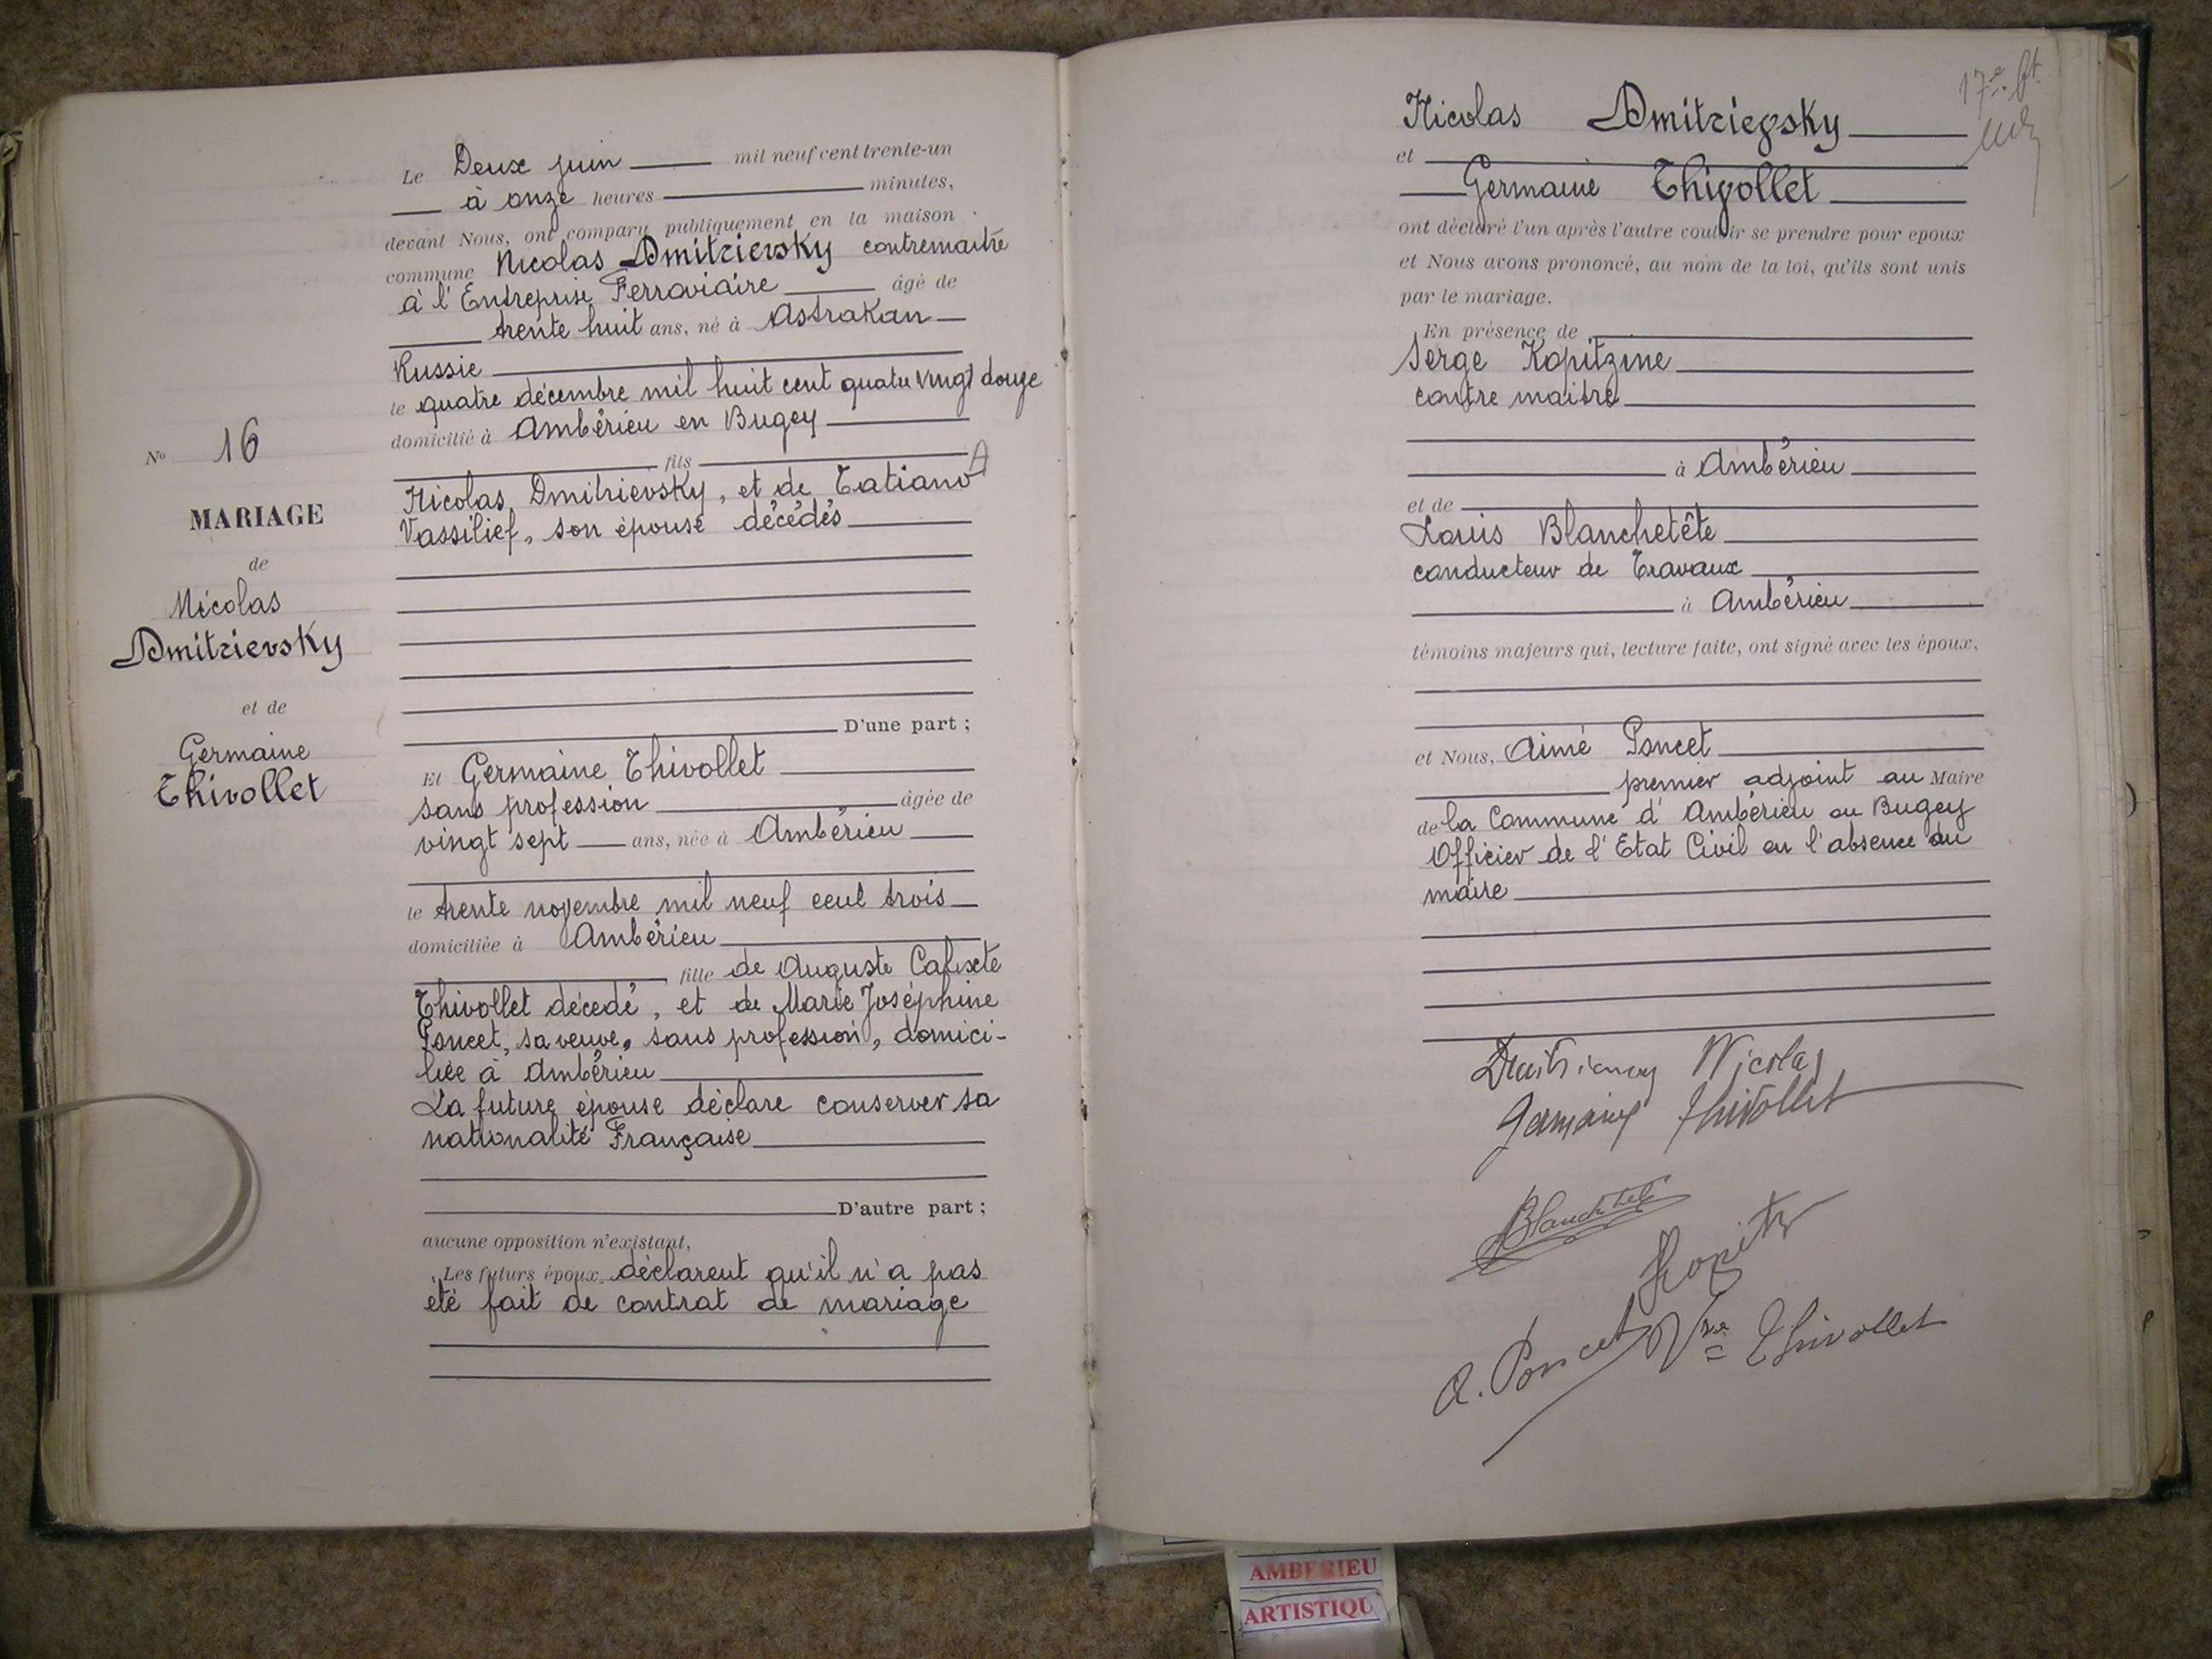 Le Deux juin mil neuf cent trente-un
à onze heures minutes,
devant Nous, ont comparu publiquement en la maison
commune Nicolas Dmitrievsky contremaitre
à l'Entreprise Ferroviaire âgé de
trente huit ans, né à Astrakan
Russie
le quatre décembre mil huit cent quatre vingt douze
domicilié à Ambérieu en Bugey
fils
Nicolas Dmitrievsky, et de Tatiana
Vassilief, son épouse décédés
D'une part ;
Et Germaine Thivollet
sans profession âgée de
vingt sept ans, née à Ambérieu
le trente novembre mil neuf cent trois
domiciliée à Ambérieu
fille de Auguste Calixte
Thivollet décédé, et de Marie Joséphine
Poncet, sa veuve, sans profession, domici-
liée à Ambérieu
La future épouse déclare conserver sa
nationalité Française
D'autre part ;
aucune opposition n'existant,
Les futurs époux déclarent qu'il n'a pas
été fait de contrat de mariage
No 16
MARIAGE
de
Nicolas
Dmitrievsky
et de
Germaine
Thivollet
Nicolas Dmitrievsky
et
Germaine Thivollet
ont déclaré l'un après l'autre vouloir se prendre pour époux
et Nous avons prononcé, au nom de la loi, qu'ils sont unis
par le mariage.
En présence de
Serge Kopitzine
contre maitre
à Ambérieu
et de
Louis Blanchetête
conducteur de Travaux
à Ambérieu
témoins majeurs qui, lecture faite, ont signé avec les époux,
et Nous, Aimé Poncet
premier adjoint au Maire
de la Commune d'Ambérieu en Bugey
Officier de l'Etat Civil en l'absence du
maire
Nicolas
Germaine Thivollet
Blanchetête
Kopitz
A. Poncet Vve Thivollet
AMBERIEU
ARTISTIQU